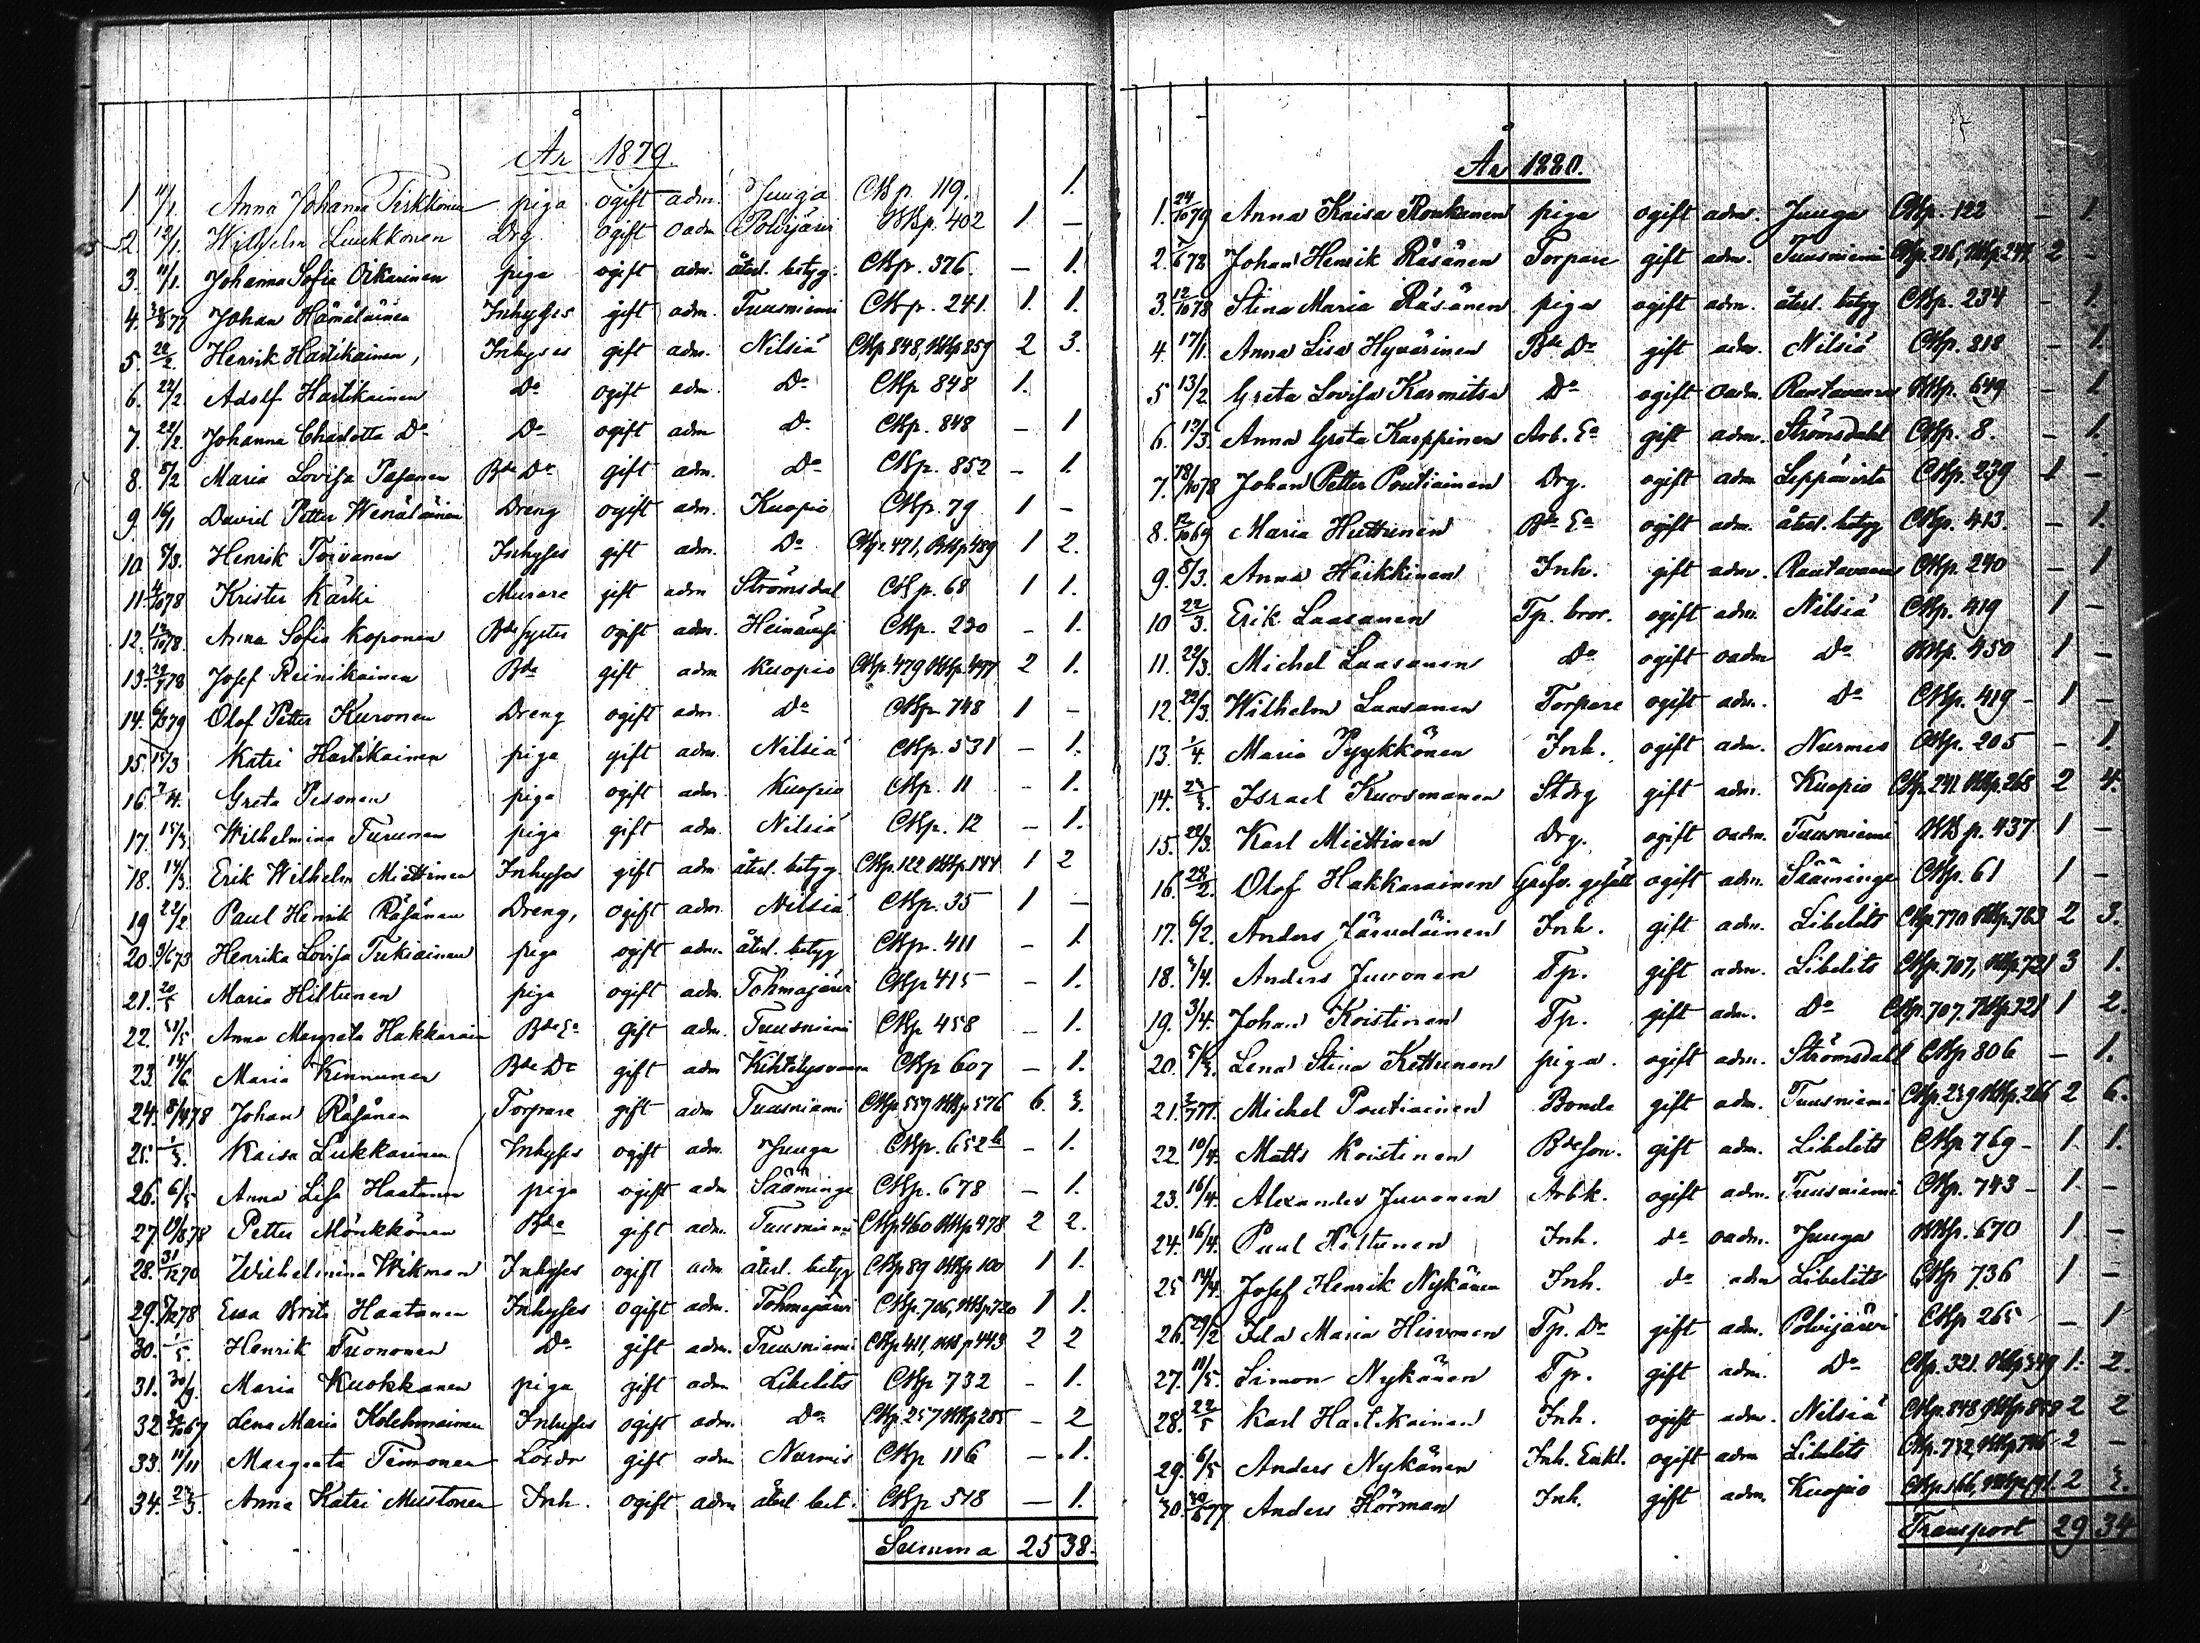 År 1879.
1. 11/1. Anna Johanna Tirkkonen piga ogift adm. Juuga CKp. 119. 1.
2. 12/1. Wilhelm Luukkonen Drg. ogift oadm Polvijärvi KKp. 402 1 —
3. 11/1. Johanna Sofia Oikarinen piga ogift adm. återl. betyg. CKp. 376. — 1.
4. Johan Hämäläinen Inhyses gift adm. Tuusniemi CKp. 241. 1. 1.
5. 22/2. Henrik Hartikainen, Inhyses gift adm. Nilsiä CKp 848, KKp 859 2 3.
6. 22/2. Adolf Hartikainen Do ogift adm. Do CKp 848 1.
7. 22/2. Johanna Charlotta Do Do ogift adm Do CKp. 848 — 1
8. 5/2 Maria Lovisa Pasanen Bde Dr gift adm. Do CKp. 852 — 1.
9. David Petter Wenäläinen Dreng ogift adm. Kuopio CKp. 79 1 —
10 5/3. Henrik Toivanen Inhyses gift adm. Do CKp. 471, KKp 489 1 2.
11. Krister Kärki Murare gift adm Strömsdal CKp. 68 1 1.
12. Anna Sofia Koponen Bde syster ogift adm. CKp. 230 — 1.
13. Josef Reinikainen Bde gift adm Kuopio CKp. 479 KKp. 497 2 1.
14. Olof Petter Kuronen Dreng ogift adm. Do CKp. 748 1 —
15. 15/3 Katri Hartikainen piga gift adm. Nilsiä CKp. 531 — 1.
16. 7/4. Greta Pesonen piga ogift adm. Kuopio CKp. 11 — 1.
17. 15/3. Wilhelmina Turunen piga gift adm. Nilsiä CKp. 12 — 1.
18. 14/3. Erik Wilhelm Miettinen Inhyses gift adm återl. betyg. CKp. 122 KKp. 144 1 2
19 22/2 Paul Henrik Räsänen Dreng, ogift adm. Nilsiä CKp. 35 1 —
20. Henrika Lovisa Tukiainen piga ogift adm. återl. betyg CKp. 411 — 1.
21. 20/5 Maria Hiltunen piga ogift adm. Tohmajärvi CKp 415 — 1.
22. Anna Margreta Hakkarain Bde Ea gift adm. Tuusniemi CKp 458 — 1.
23. 14/6 Maria Kinnunen Bde Dr gift adm Kihtelysvaara CKp 607 — 1.
24. Johan Räsänen Torpare gift adm Tuusniemi CKp 557 KKp 576 6. 3.
25. 1/5. Kaisa Lukkarinen Inhyses ogift adm. Juuga CKp. 652 — 1.
26. 6/5 Anna Lisa Haatanen piga ogift adm Sääminge CKp. 678 — 1.
27. Petter Mönkkönen Bde gift adm. Tuusniemi CKp 460 KKp 478 2 2.
28. 31/12 70 Wilhelmina Wikman Inhyses ogift adm återl. betyg CKp 89 KKp 100 1 1.
29. Ewa Brita Haatanen Inhyses ogift adm. Tohmajärvi CKp. 706, KKp. 720 1 1.
30. 1/5. Henrik Tuononen Do gift adm. Tuusniemi CKp 411, KKp 443 2 2
31. 30/9. Maria Kuokkanen piga gift adm Libelits CKp 732 — 1.
32 Lena Maria Kolehmainen Inhyses ogift adm. Do CKp. 257 KKp 285 — 2
33. 11/11 Margreta Timonen Lösdr gift adm Nurmis CKp 116 — 1.
34. 23/3. Anna Katri Mustonen Inh. ogift adm återl bet. CKp 518 — 1.
Summa 25 38.
År 1880.
1. 24/10 79 Anna Kaisa Ronkanen piga ogift adm. Juuga CKp. 122 — 1.
2. Johan Henrik Räsänen Torpare gift adm. Tuusniemi 2 —
3. 12/10 78 Stina Maria Räsänen piga ogift adm. återl. betyg CKp. 234 — 1.
4. 17/1. Anna Lisa Hyvärinen Bde Dr gift adm. Nilsiä CKp. 818 — 1.
5 13/2. Greta Lovisa Karmitsa Do ogift oadm. Rautavaara KKp. 649 — 1
6. 12/3. Anna Greta Karppinen Arb. Ea gift adm. Strömsdahl CKp. 8. — 1.
7. 18/10 78 Johan Petter Poutiainen Drg. ogift adm Leppävirta CKp. 239 1 —
8. 12/10 69 Maria Huttunen Bde Ea ogift adm. återl. betyg CKp. 413. — 1.
9. 8/3. Anna Heikkinen Inh. gift adm. Rautavaara CKp. 240 — 1
10 22/3. Erik Laasanen Tp. bror. ogift adm. Nilsiä CKp. 419 1 —
11. 22/3. Michel Laasanen Do ogift oadm Do KKp. 450 1 —
12. 22/3. Wilhelm Laasanen Torpare ogift adm. Do CKp. 419 — 1 —
13. 1/4. Maria Pyykkönen Inh. ogift adm. Nurmes CKp. 205 — 1.
14. Israel Kuosmanen Stdrg gift adm. Kuopio CKp. 241 KKp. 268 2 4.
15. 22/3. Karl Miettinen Drg. ogift oadm. Tuusniemi KKp. 437 1 —
16. 28/2. Olof Hakkarainen ogift adm. Sääminge CKp. 61 1 —
17. 6/2. Anders Järveläinen Inh. gift adm. Libelits CKp. 770 KKp. 763 2 3.
18. Anders Juvonen Tp. gift adm. Libelits CKp. 707, KKp. 721 3 1.
19. 3/4. Johan Koistinen Tp. gift adm. Do CKp. 707. KKp 721 1 2.
20. Lena Stina Kettunen piga. ogift adm. Strömsdall CKp 806 — 1.
21. Michel Poutiainen Bonde gift adm. Tuusniemi CKp. 239 KKp. 266 2 6.
22. 10/4. Matts Koistinen Bde son. gift adm. Libelits CKp 769 — 1. 1.
23. 16/4. Alexander Juvonen Arbk. ogift adm. Tuusniemi CKp. 743 1 —
24. 16/4. Paul Hiltunen Inh. do oadm. Juuga KKp. 670 1 —
25 14/4. Josef Henrik Nykänen Inh. do adm Libelits CKp 736 1 —
26. 29/2 Ida Maria Hirvonen Tp. Dr gift adm. Polvijärvi CKp 265 — 1
27. 11/5. Simon Nykänen Tp. gift adm. Do CKp. 321. KKp 339 1. 2.
28. 22/5 Karl Hartikainen Inh. ogift adm. Nilsiä CKp. 848 KKp 848 2 2
29. 6/5 Anders Nykänen Inh. Enkl. ogift adm Libelits CKp. 732, KKp. 746 2 —
30. Anders Hörman Inh. gift adm. Kuopio 2 3.
Transport 29 34